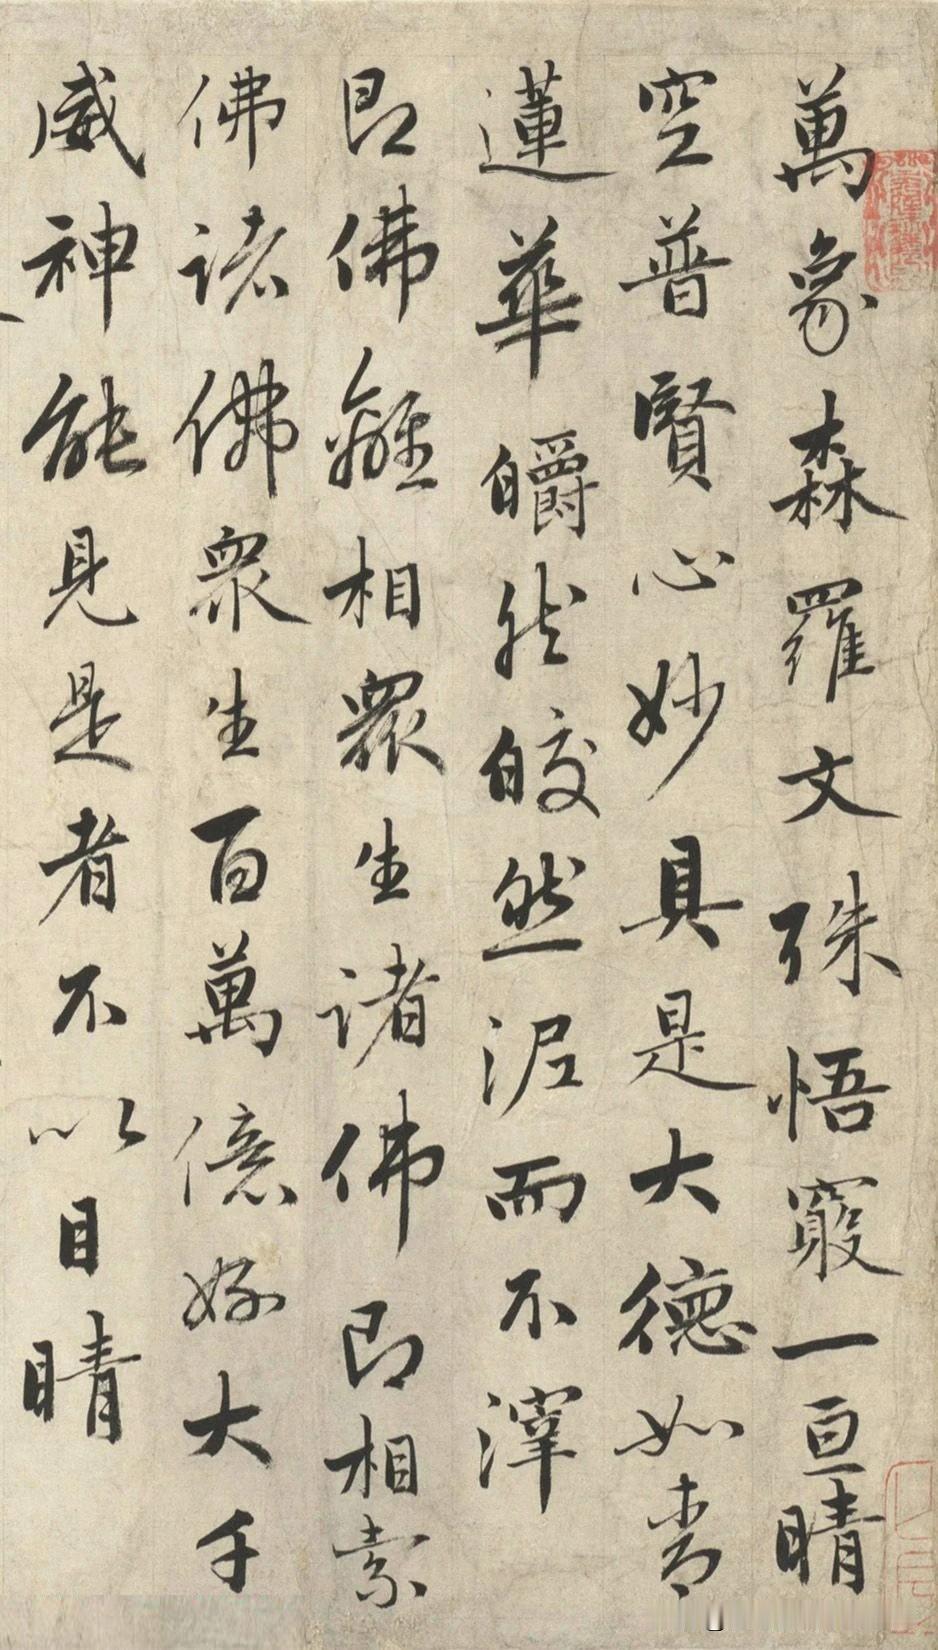 萬象森羅文殊悟窾一亘晴
空普賢心妙具是大德如青
蓮華皭然皎然泥而不滓
即佛離相眾生諸佛即相索
佛諸佛眾生百萬億好大千
威神能見是者不以目睛